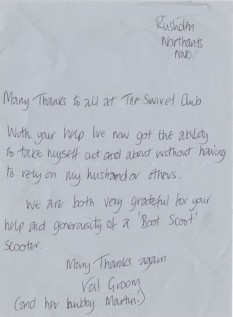 Rushden
Northants
NN10
Many Thanks to all at The Swivel Club
With your help I've now got the ability
to take myself out and about without having
to rely on my husband or others.
We are both very grateful for your
help and generousity of a 'Boot Scoot'
Scooter.
Many Thanks again
Val Groom
(and her hubby Martin!)